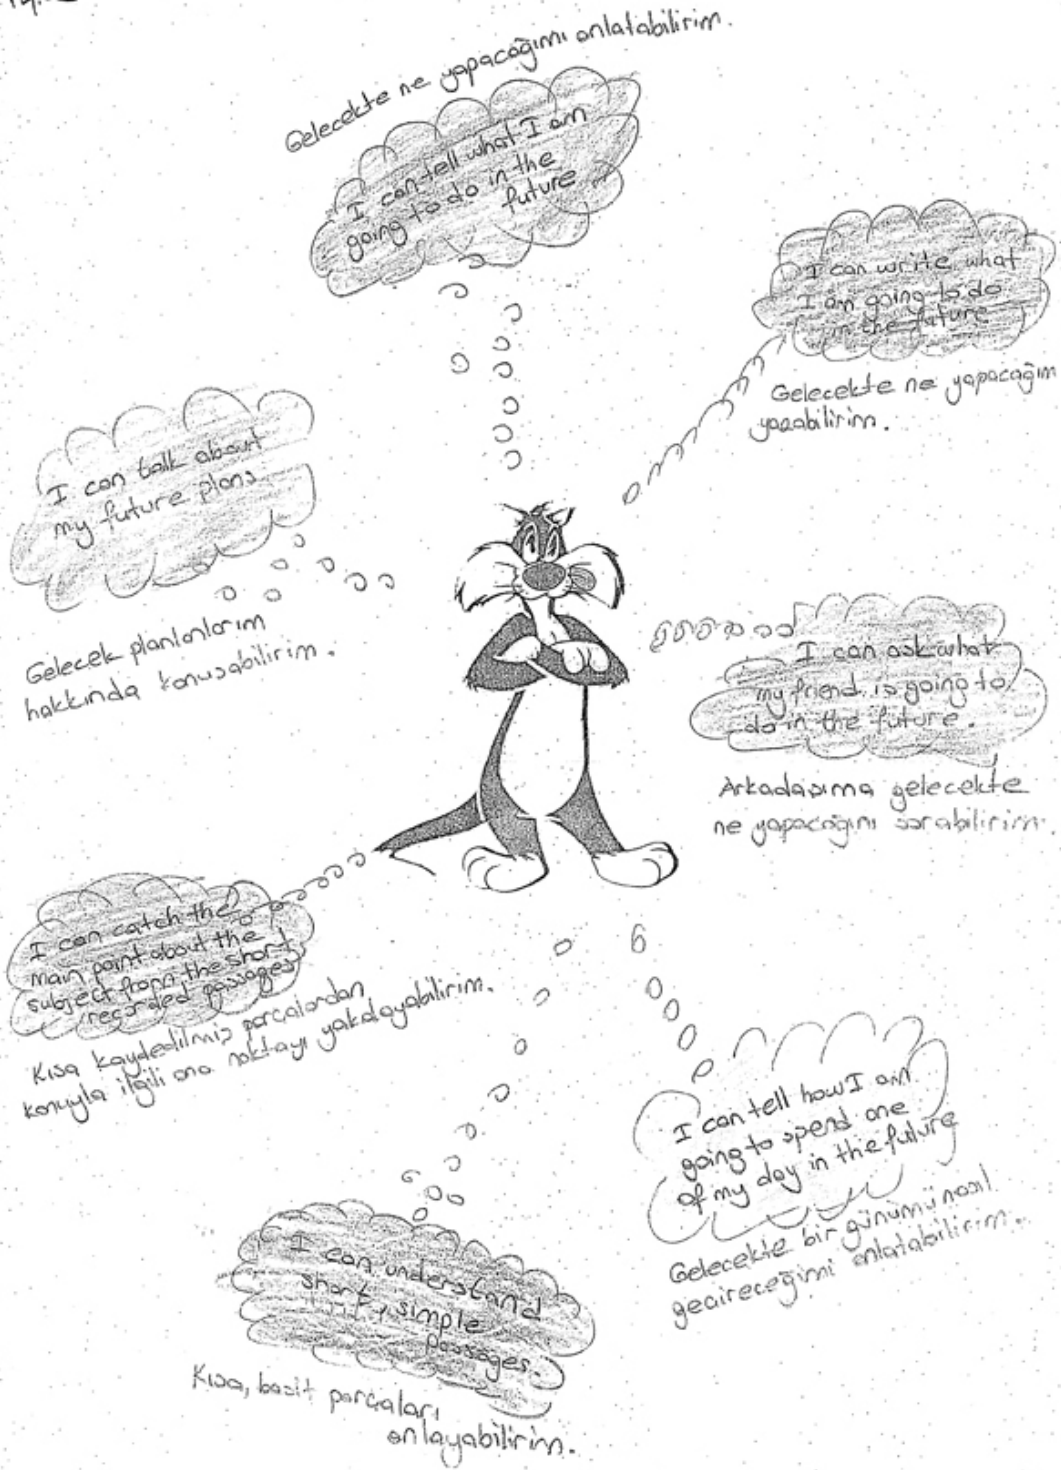 Gelecekte ne yapacağımı anlatabilirim.
I can tell what I am
going to do in the
future
I can write what
I am going to do
in the future
Gelecekte ne yapacağım
yazabilirim.
I can talk about
my future plans
Gelecek planlarlarım
hakkında konuşabilirim.
I can ask what
my friend is going to
do in the future.
Arkadaşıma gelecekte
ne yapacağını sorabilirim.
I can catch the
main point about the
subject from the short
recorded passages
Kısa kaydedilmiş parçalardan
konuyla ilgili ana noktayı yakalayabilirim.
I can tell how I am
going to spend one
of my day in the future
Gelecekte bir günümü nasıl
geçireceğimi anlatabilirim.
I can understand
short, simple
passages.
Kısa, basit parçaları
anlayabilirim.